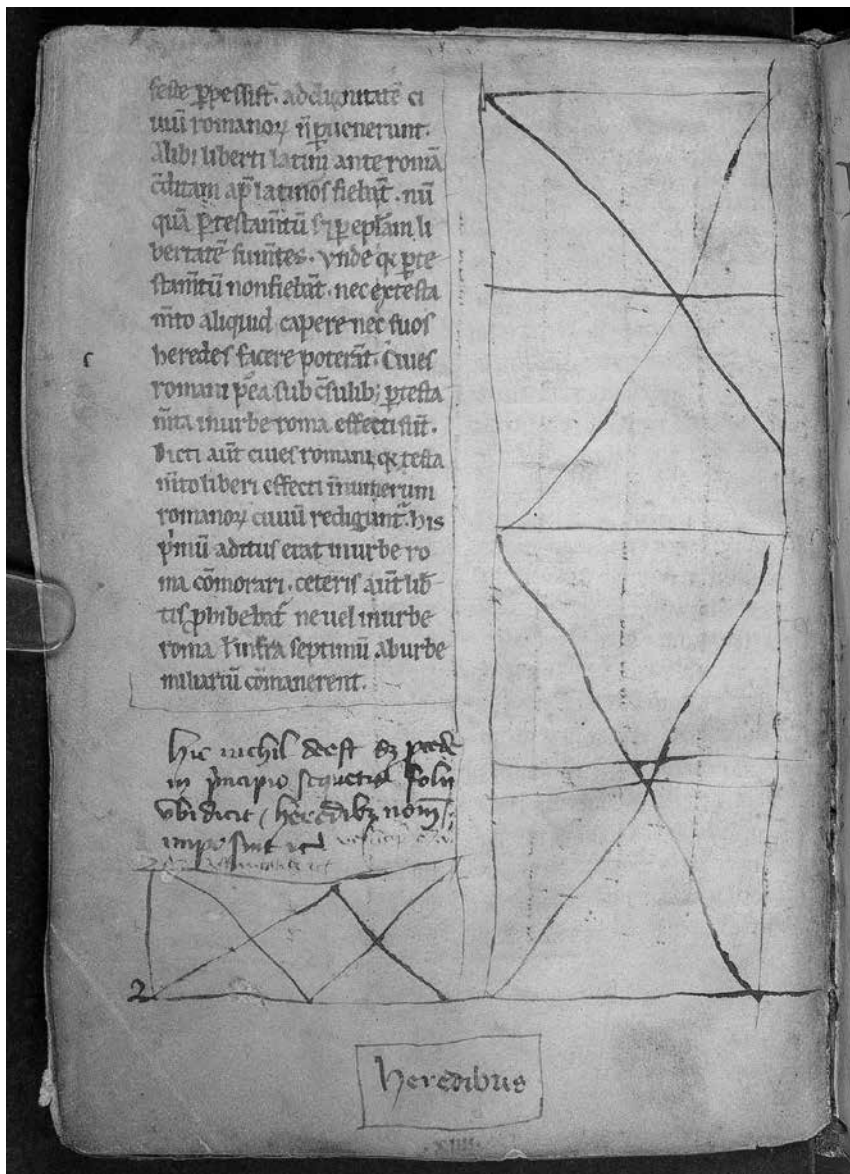 feste ꝑpessi st̄. ad dignitatē ci
uiū romanoꝝ ñ ꝑuenerunt.
Alibi liberti latini ante romā
c̄ditam ap̄ latinos fiebāt. nū
quā ꝑ testam̄tū sꝫ ꝑ epl̄am li
bertatē sum̄tes. Vnde qꝛ ꝑ te
stam̄tū non fiebāt. nec ex testa
m̄to aliquid capere nec suos
heredes facere poterāt. Ciues
romani p̄ea sub c̄sulibꝫ ꝑ testa
m̄ta in urbe roma effecti st̄.
Dicti aūt ciues romani, qꝛ testa
m̄to liberi effecti in numerum
romanoꝝ ciuiū redigunt᷑. his
p̍mū aditus erat in urbe ro
ma cōmorari. ceteris aūt lib̄
tis ꝓhibebat᷑ ne uel in urbe
roma ł infra septimū ab urbe
miliariū cōmanerent.
hic nichil deest sꝫ
in p̍ncipio sequētis folii
vbi dicit heredibꝫ nom̄
īmposūit
heredibus
.xiiii.